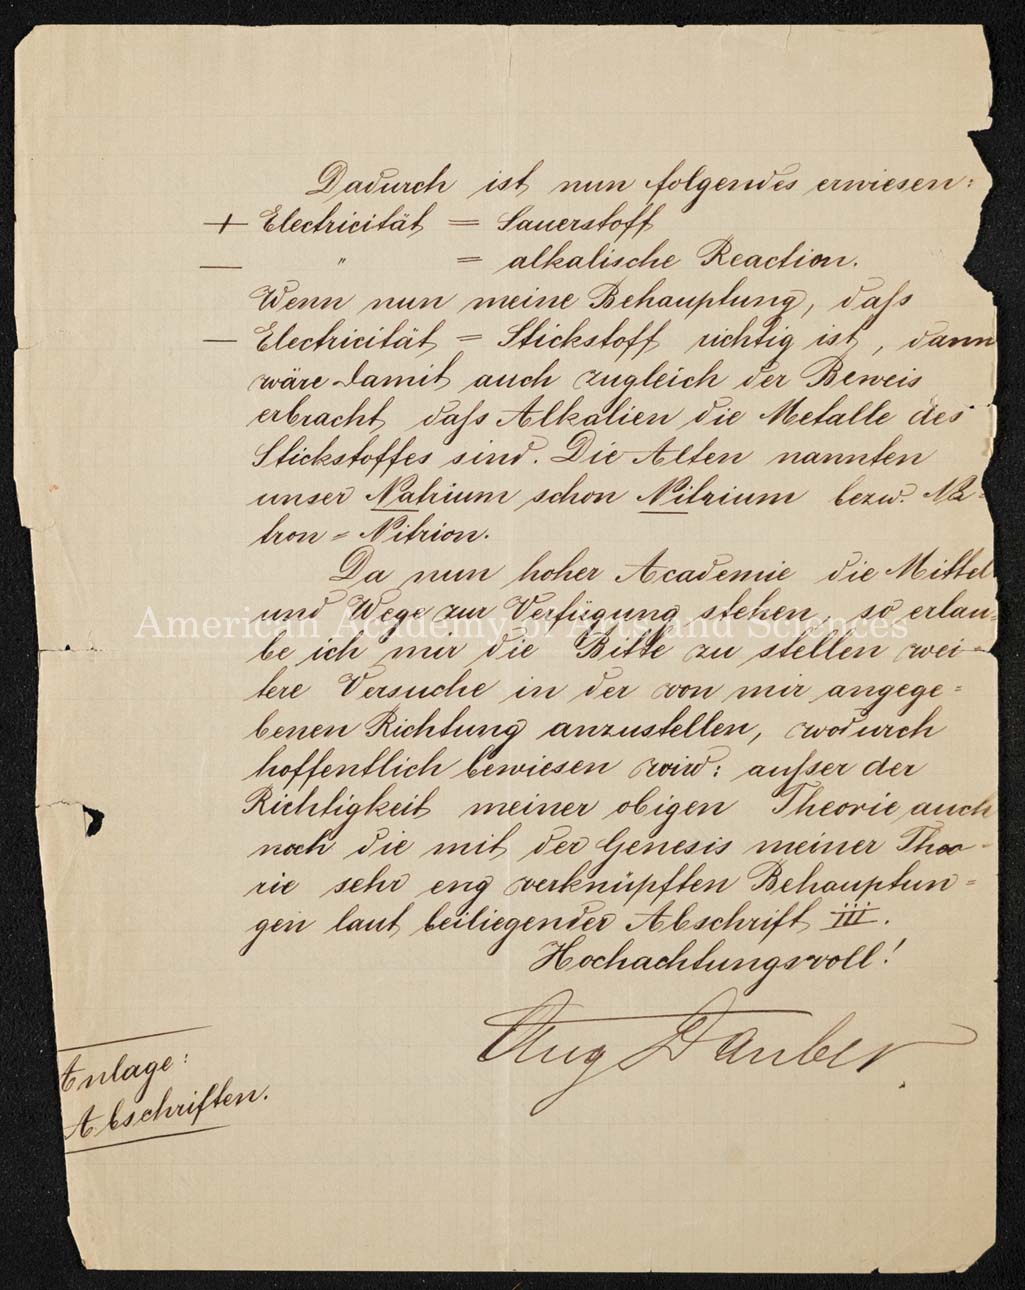 Dadurch ist nun folgendes erwiesen:
+ Electricität = Sauerstoff
— " = alkalische Reaction.
Wenn nun meine Behauptung, daſs
— Electricität = Stickstoff richtig ist, dann
wäre damit auch zugleich der Beweis
erbracht daſs Alkalien die Metalle des
Stickstoffes sind. Die Alten nannten
unser Natrium schon Nitrium bezw. Na=
tron = Nitrion.
Da nun hoher Academie die Mittel
und Wege zur Verfügung stehen, so erlau=
American Academy of Arts and Sciences
be ich mir die Bitte zu stellen wei=
tere Versuche in der von mir angege=
benen Richtung anzustellen, wodurch
hoffentlich bewiesen wird: auſser der
Richtigkeit meiner obigen Theorie auch
noch die mit der Genesis meiner Theo=
rie sehr eng verknüpften Behauptun=
gen laut beiliegender Abschrift III.
Hochachtungsvoll!
Aug Dauber.
Anlage:
Abschriften.